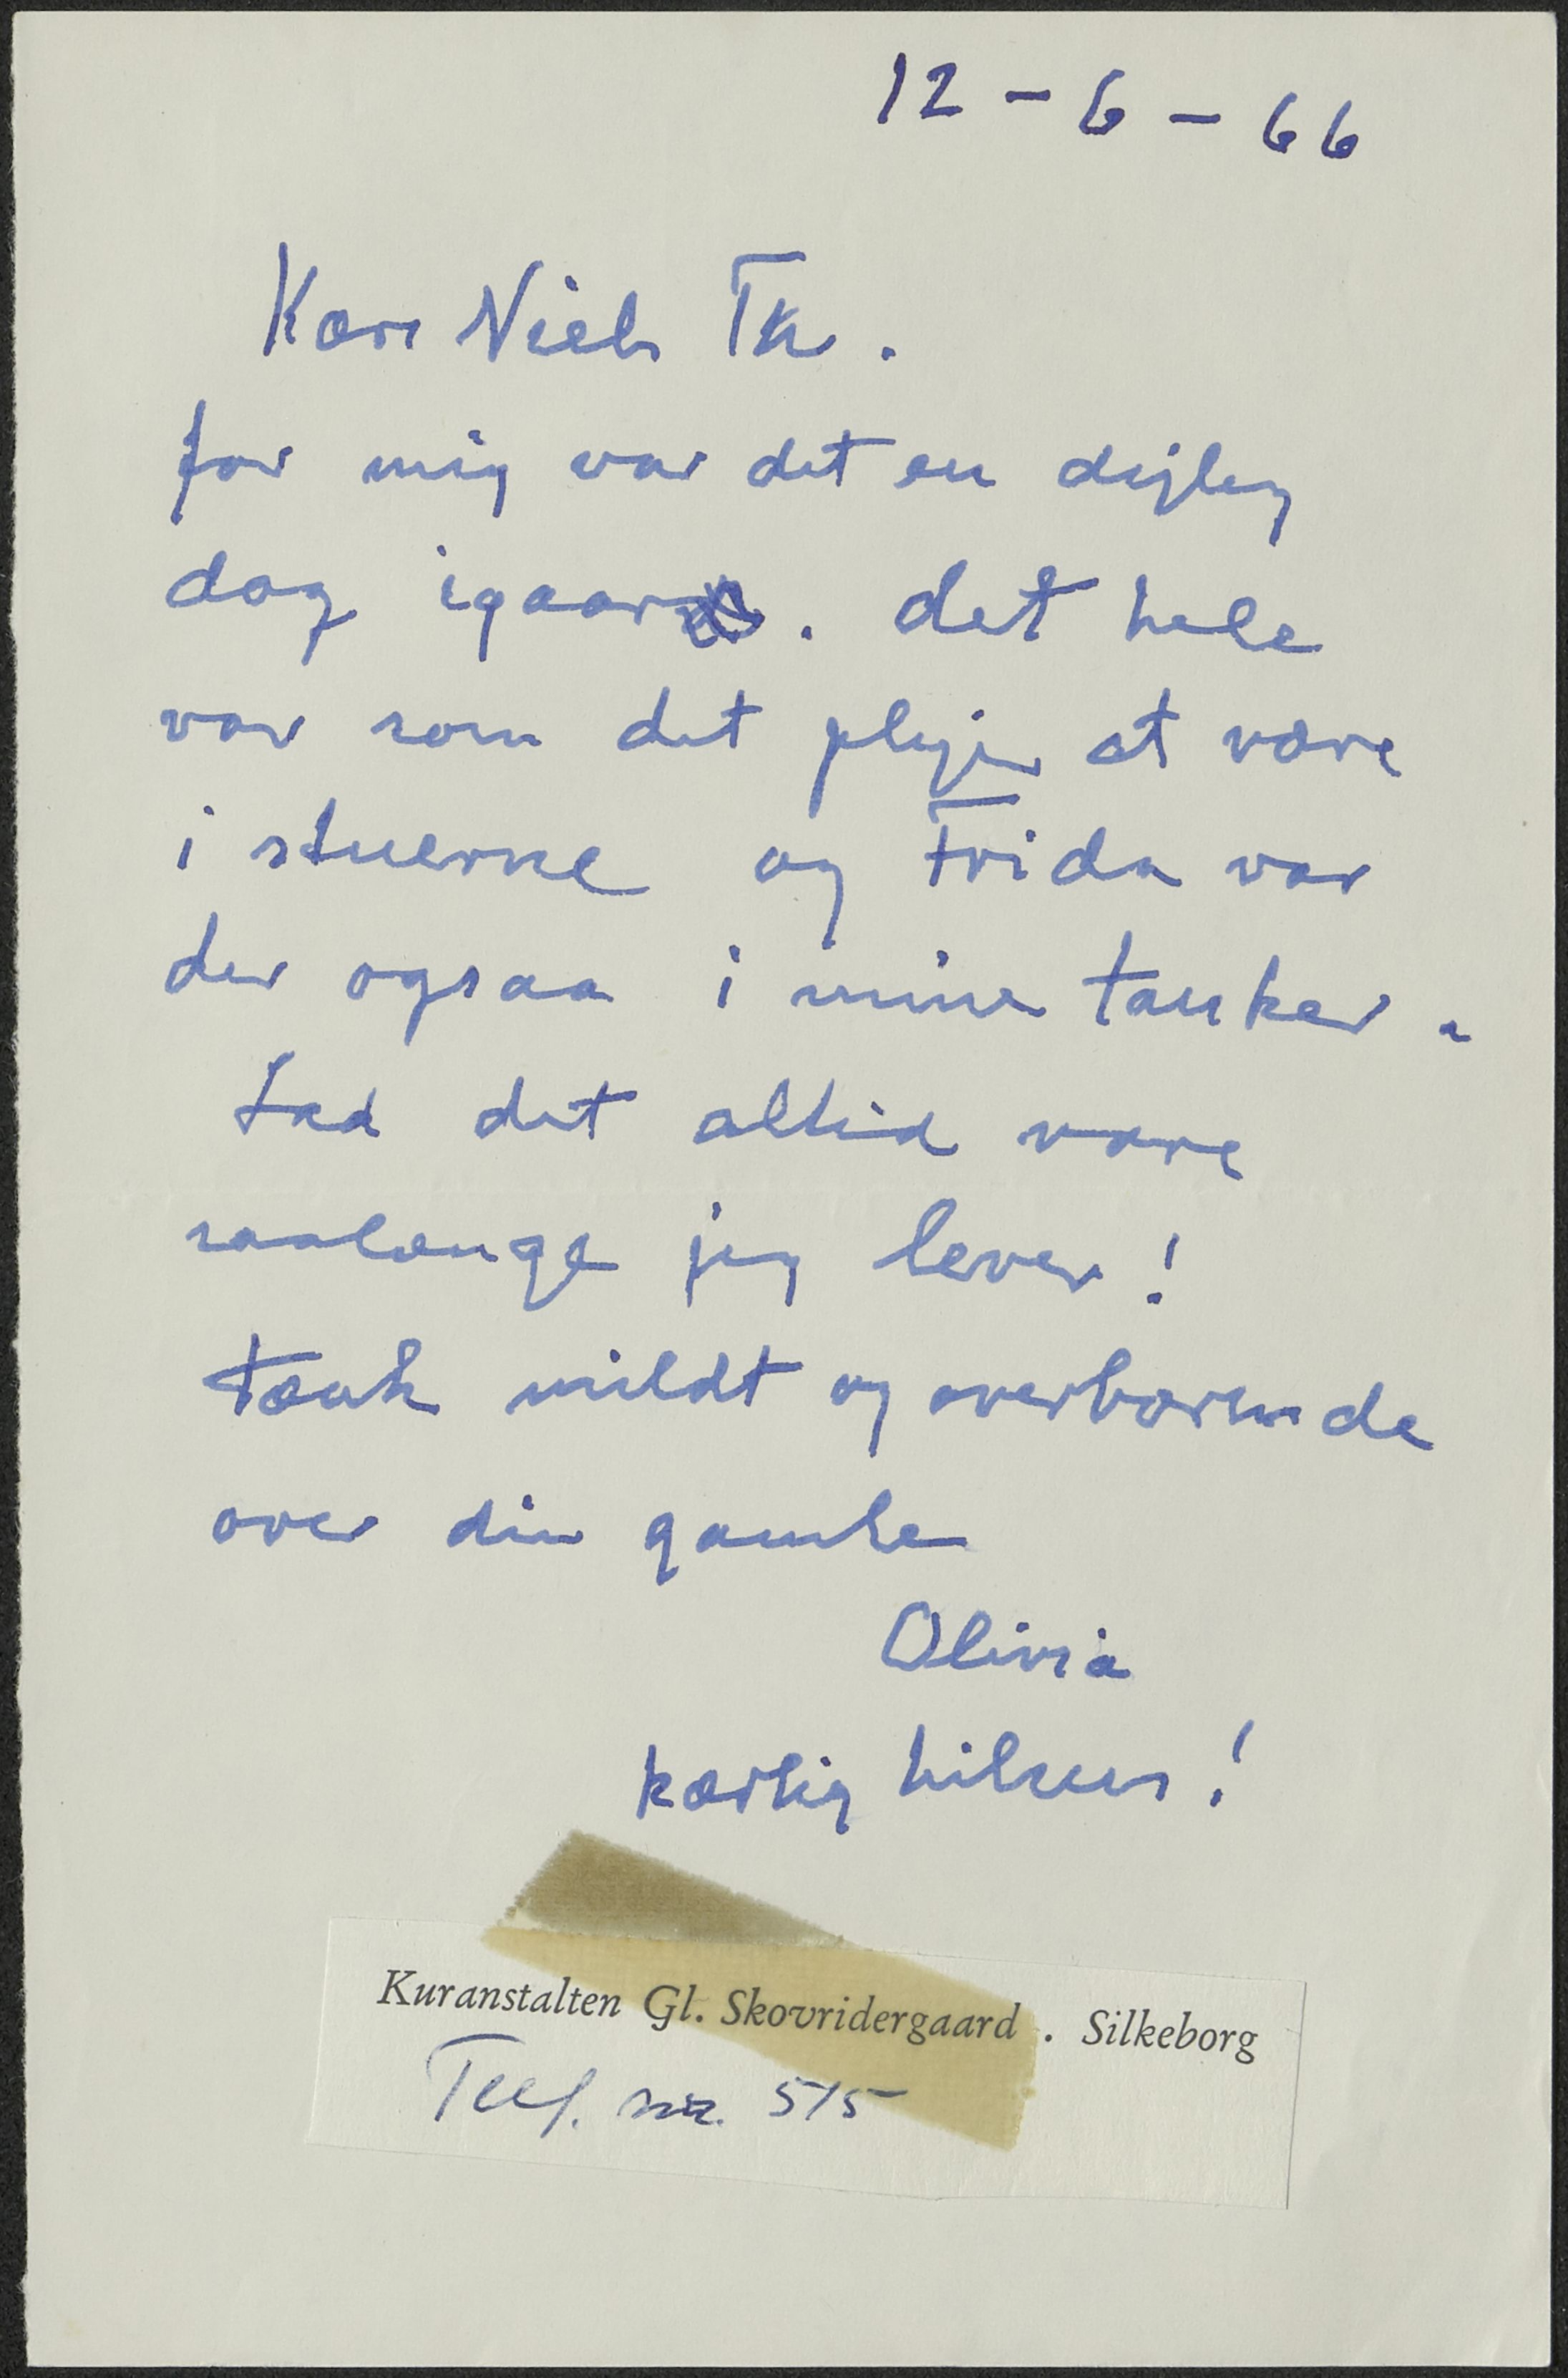 12 - 6 - 66
Kære Niels Th.
for mig var det en dejlig
dag igaar. det hele
var som det plejer at være
i stuerne og Frida var
der ogsaa i mine tanker.
Lad det altid være
saalænge jeg lever!
tænk mildt og overbærende
over din gamle
Olivia
kærlig hilsen!
Kuranstalten Gl. Skovridergaard . Silkeborg
Telf. nr. 515